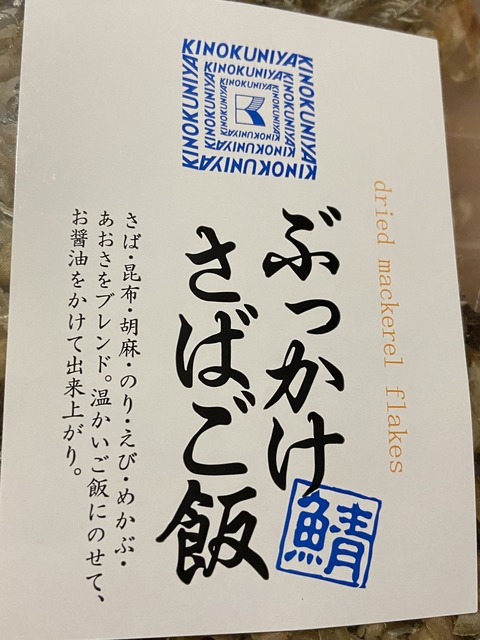 KINOKUNIYA KINOKUNIYA KINOKUNIYA KINOKUNIYA
KINOKUNIYA KINOKUNIYA KINOKUNIYA KINOKUNIYA
KINOKUNIYA KINOKUNIYA KINOKUNIYA KINOKUNIYA
dried mackerel flakes
ぶっかけ
鯖
さばご飯
さば・昆布・胡麻・のり・えび・めかぶ・
あおさをブレンド。温かいご飯にのせて、
お醤油をかけて出来上がり。